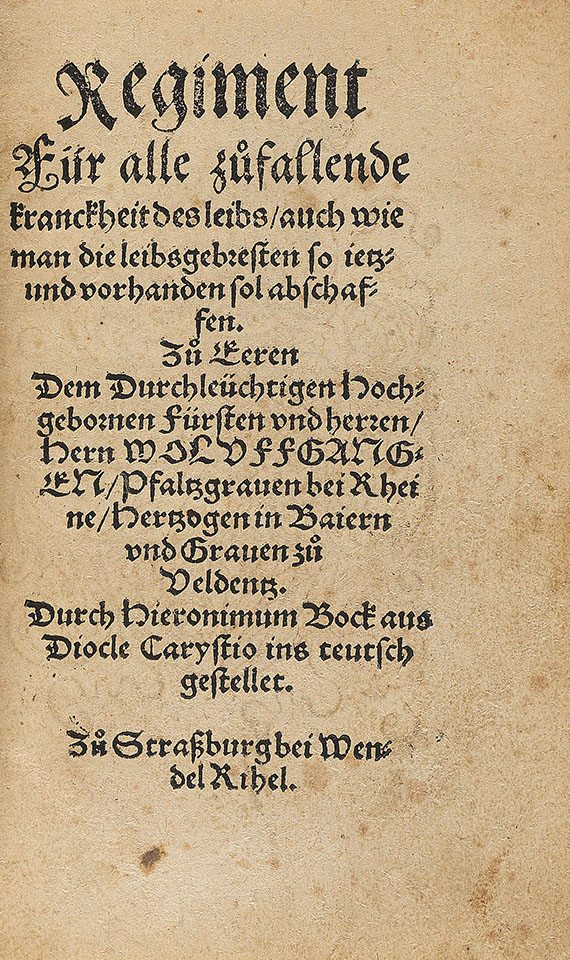 Regiment
Für alle zůfallende
kranckheit des leibs/auch wie
man die leibsgebresten so ietz⸗
und vorhanden sol abschaf⸗
fen.
Zů Eeren
Dem Durchleüchtigen Hoch⸗
gebornen Fürsten vnd herren/
Hern WOLVFFGANG⸗
EN/Pfaltzgrauen bei Rhei
ne/Hertzogen in Baiern
vnd Grauen zů
Veldentz.
Durch Hieronimum Bock aus
Diocle Carystio ins teutsch
gestellet.
Zů Straßburg bei Wen⸗
del Rihel.